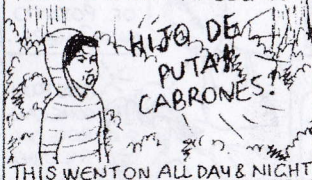 HIJO DE
PUTA!
CABRONES!
THIS WENT ON ALL DAY & NIGHT